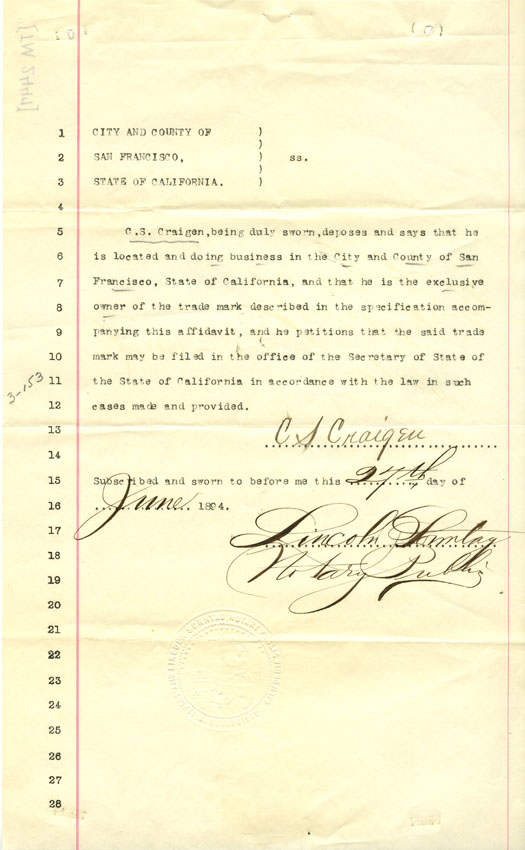 (0)
1 CITY AND COUNTY OF )
)
2 SAN FRANCISCO, ) ss.
)
3 STATE OF CALIFORNIA. )
4
5 C.S. Craigen, being duly sworn, deposes and says that he
6 is located and doing business in the City and County of San
7 Francisco, State of California, and that he is the exclusive
8 owner of the trade mark described in the specification accom-
9 panying this affidavit, and he petitions that the said trade
10 mark may be filed in the office of the Secretary of State of
3-153
11 the State of California in accordance with the law in such
12 cases made and provided.
13 C S Craigen
14
15 Subscribed and sworn to before me this 27th day of
16 June 1894.
17 Lincoln
18 Notary Public
19
20
21
22
23
24
25
26
27
28